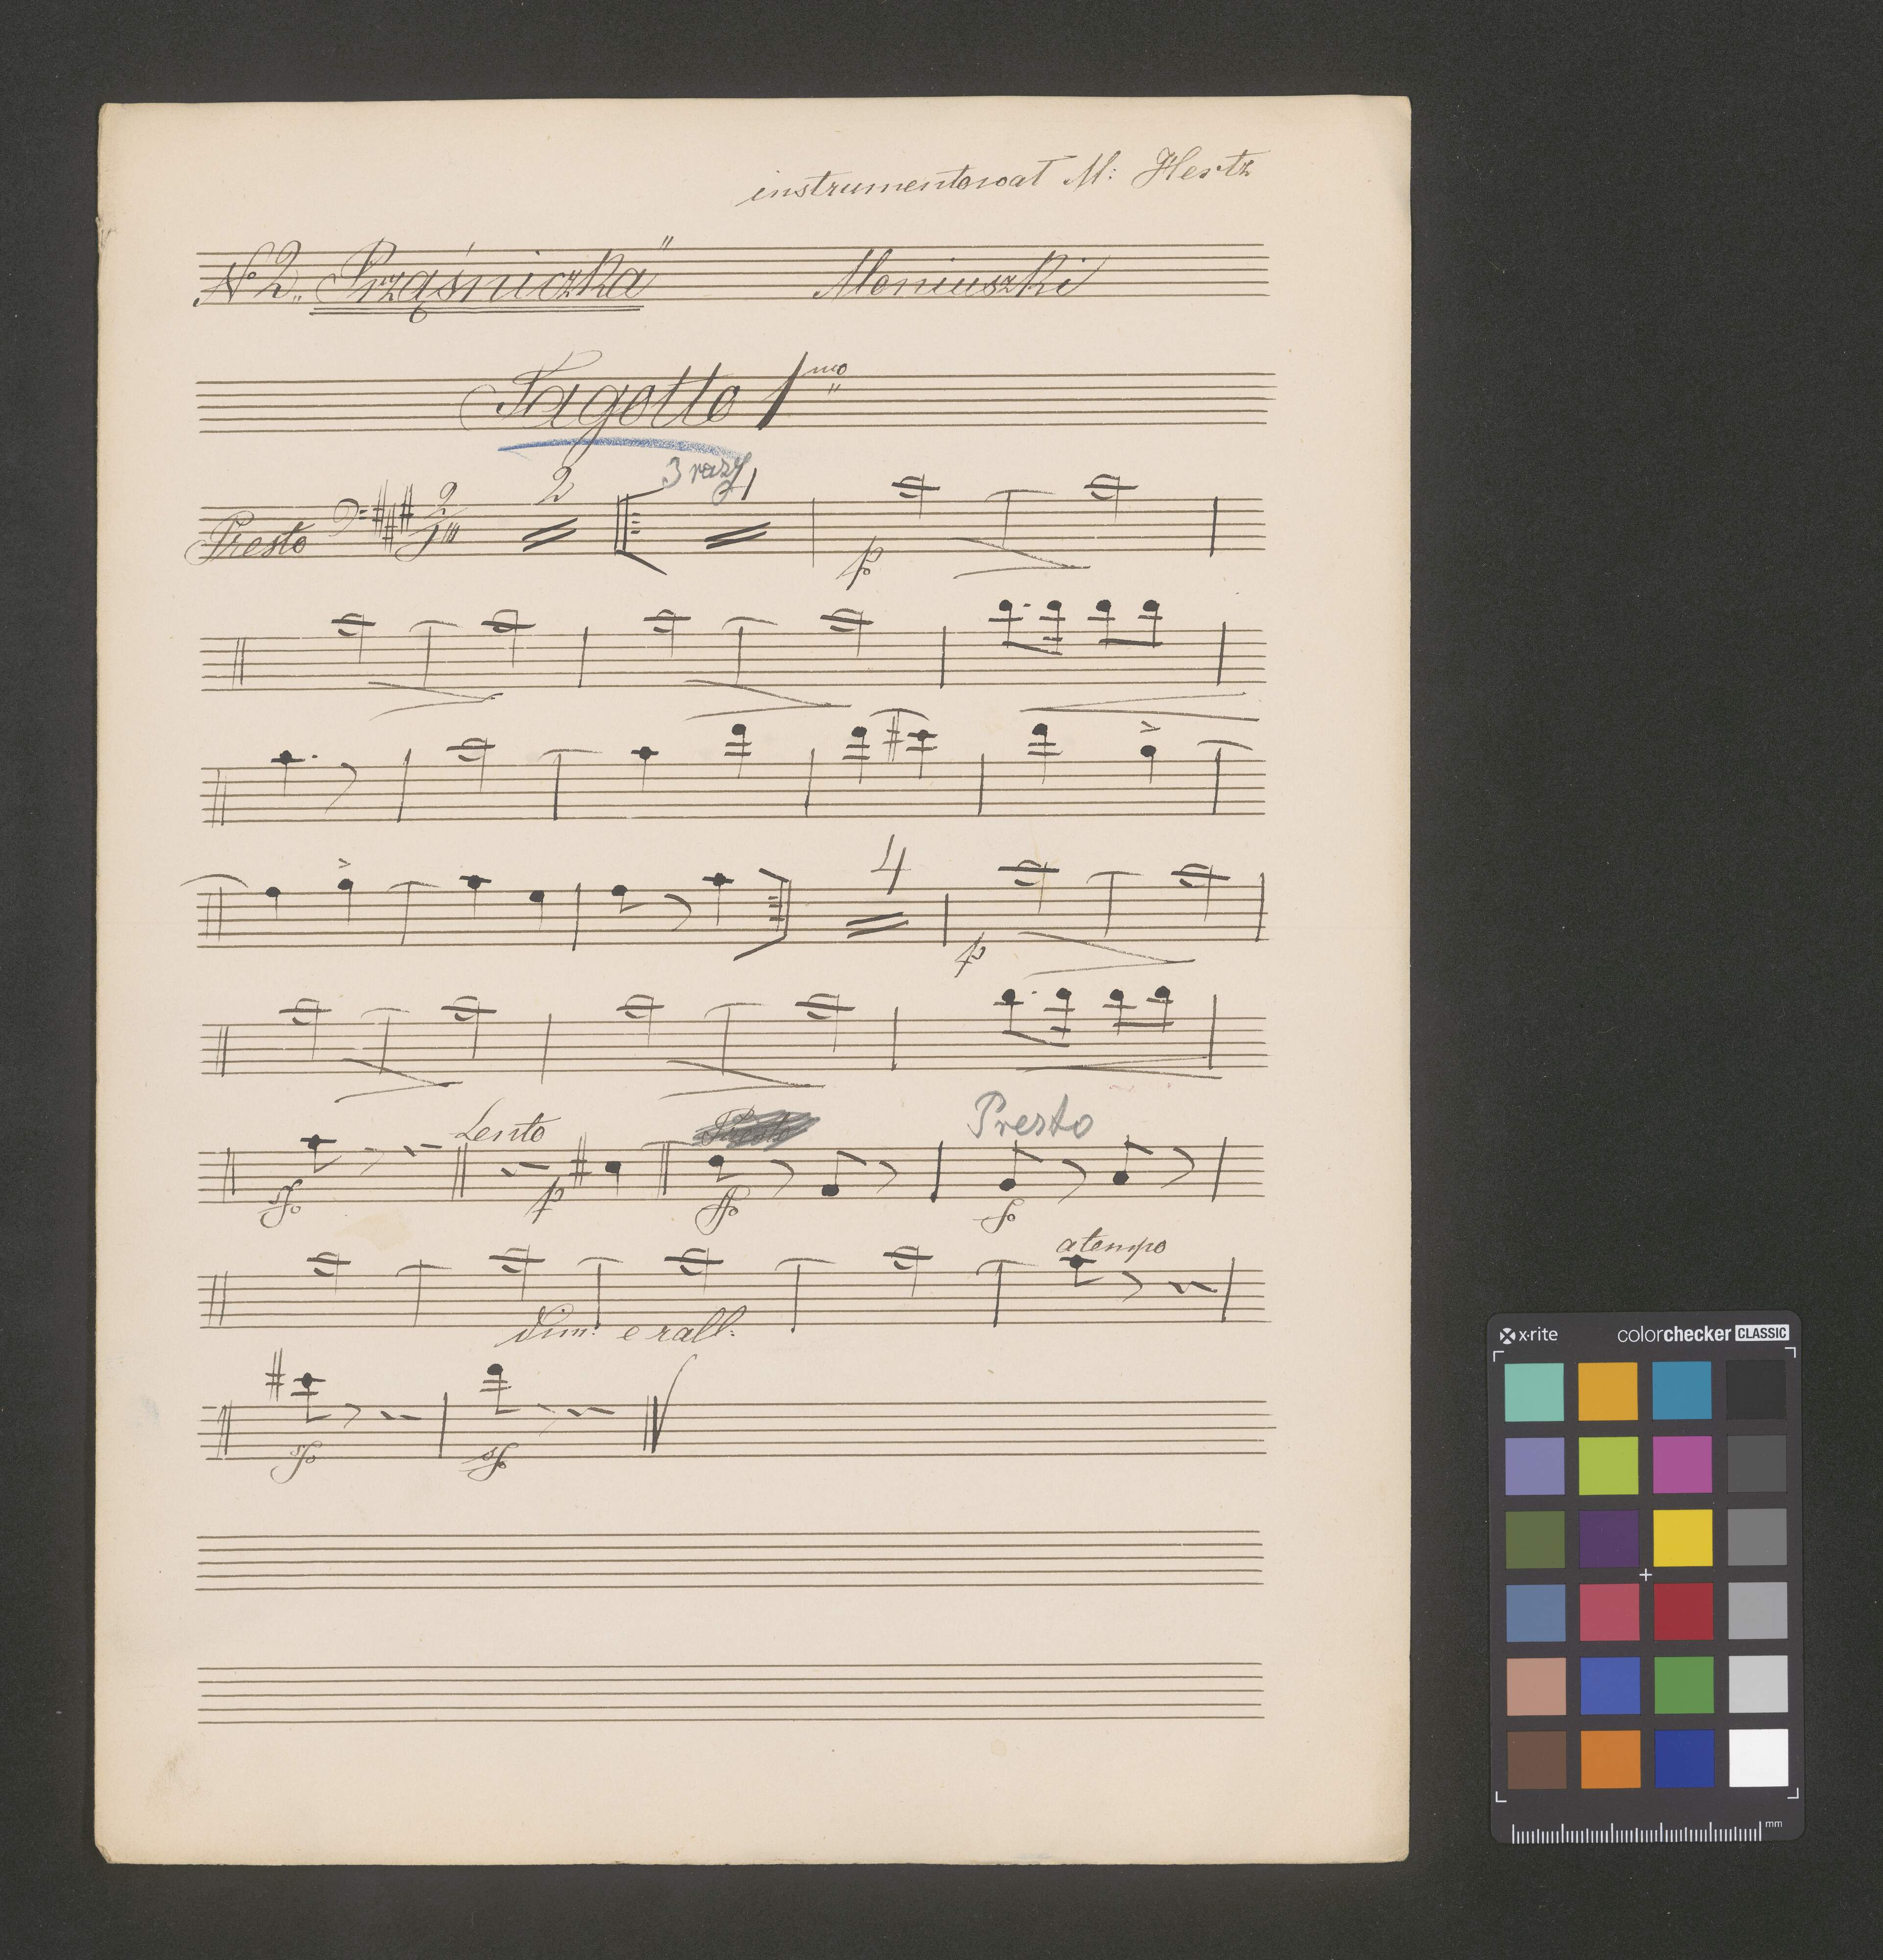 instrumentował M: Hertz
No 2. „Prząśniczka" Moniuszki
Fagotto 1mo
3 razy
2 1
Presto
p
4
p
Lento Presto Presto
sf p ff f
a tempo
dim: e rall:
sf sf
x-rite colorchecker CLASSIC
mm